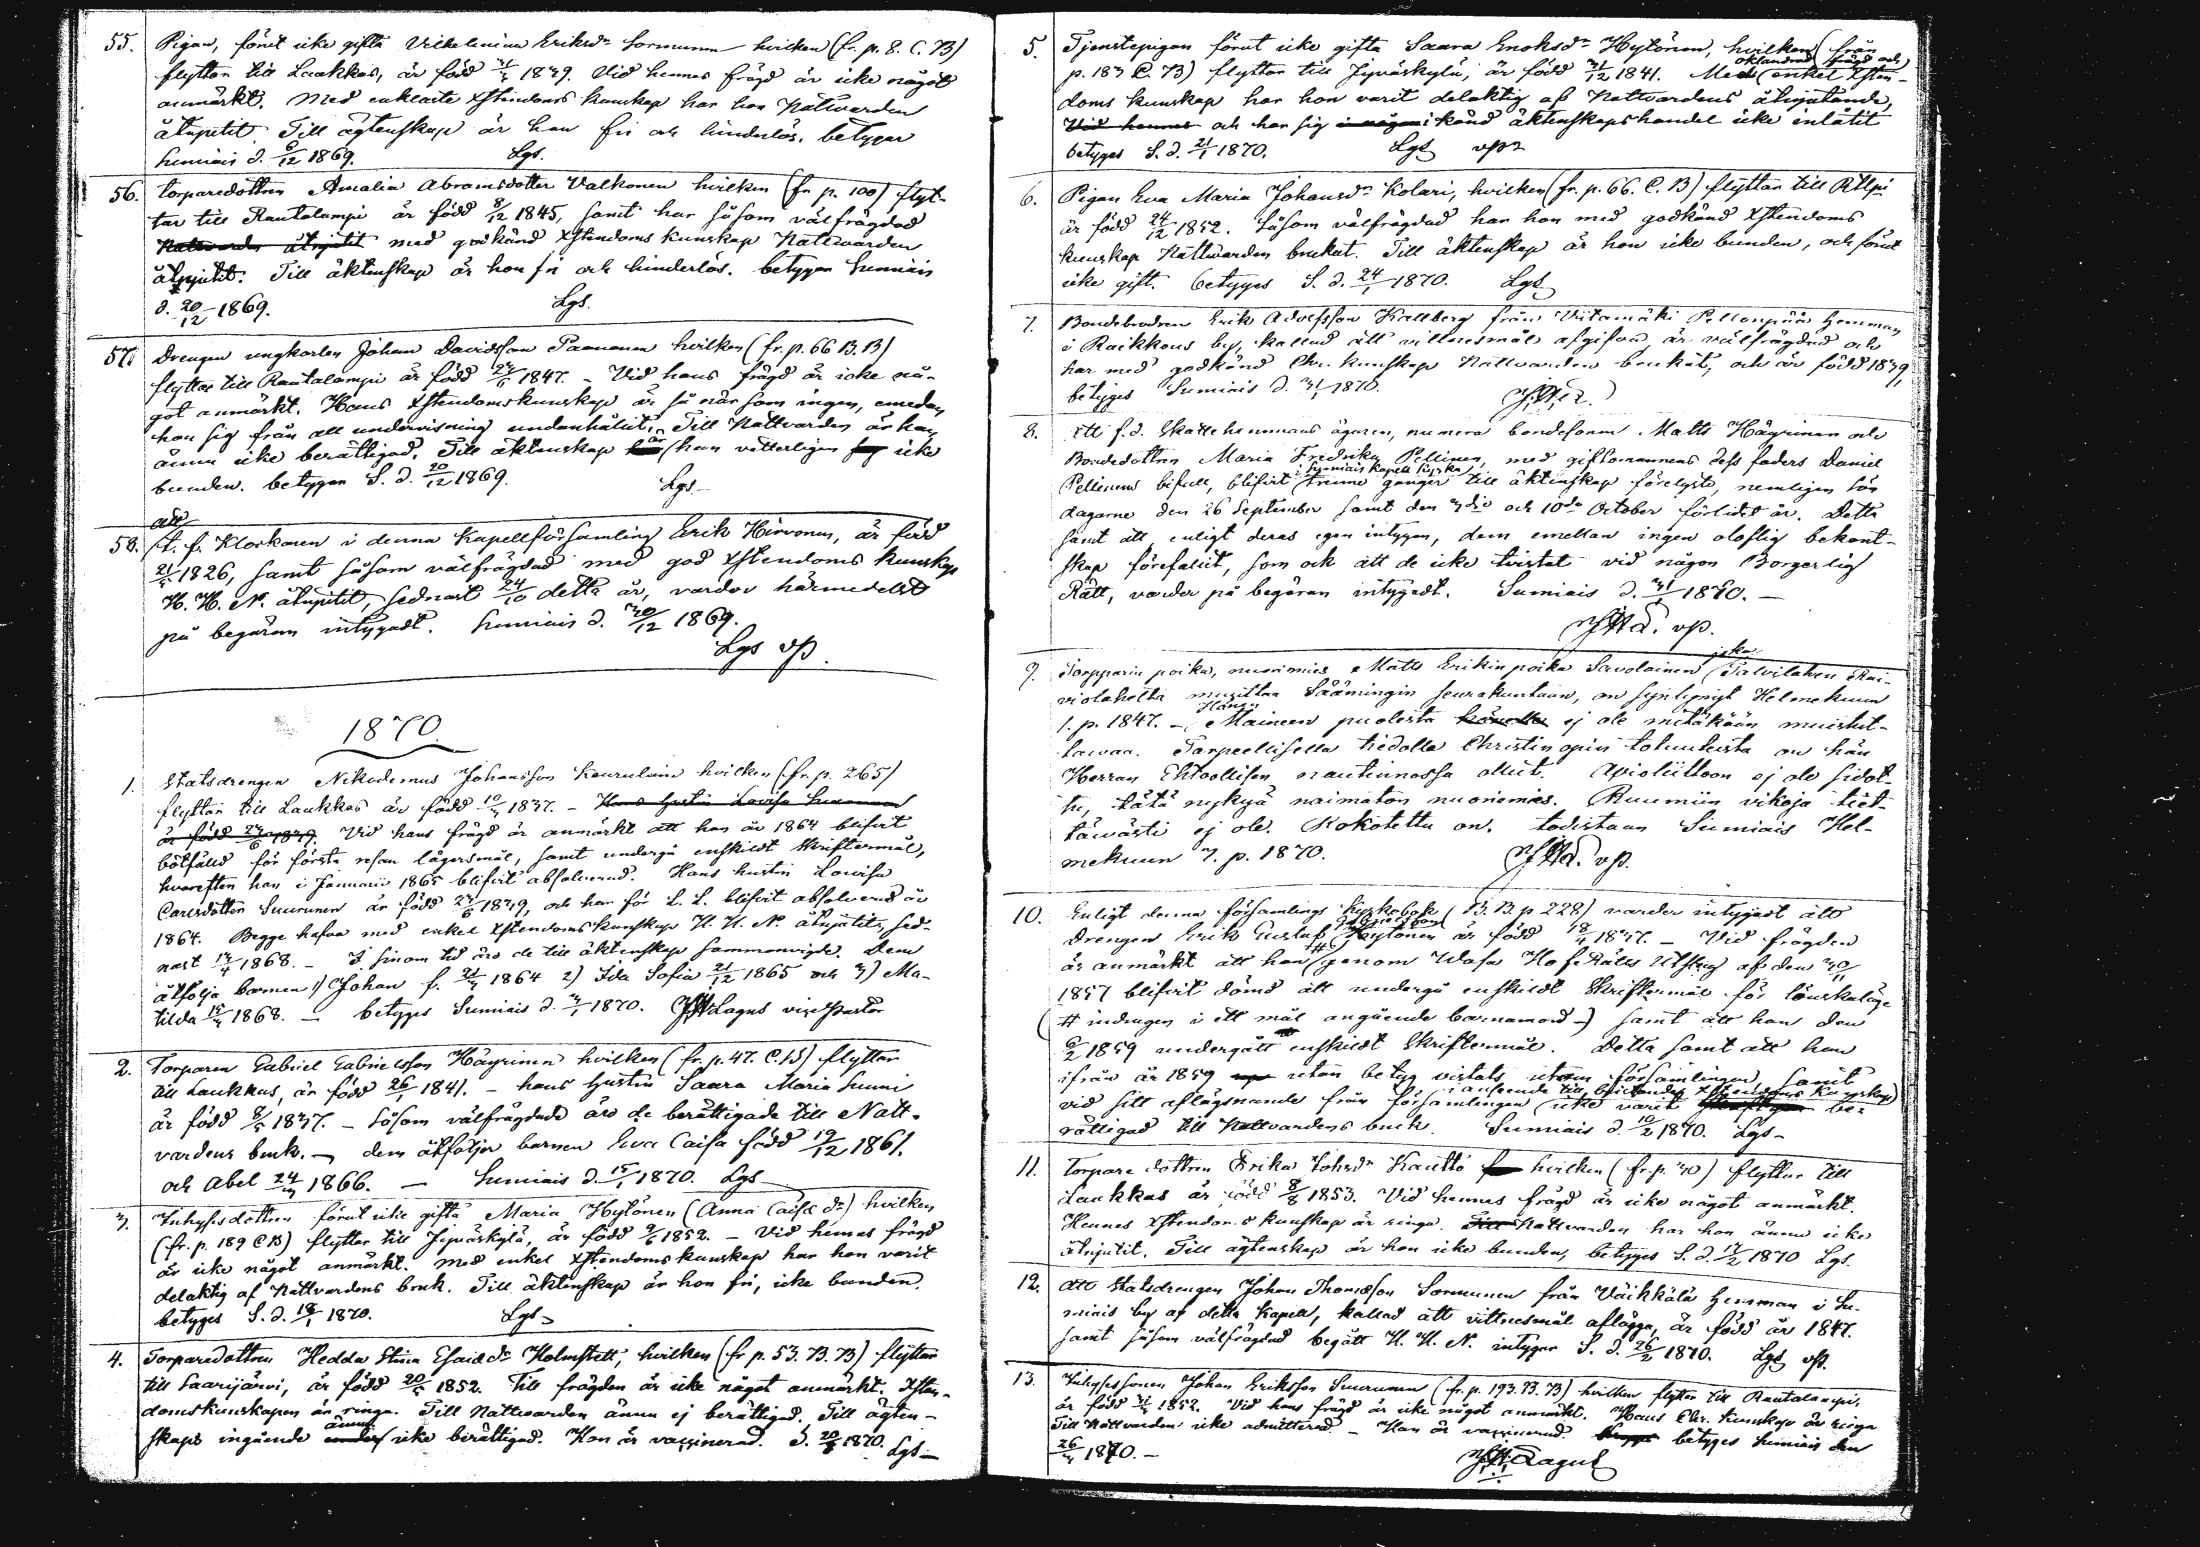 55. Pigan, förut icke gifta Vilhelmina Eriksdr Sormunen hvilken (fr. p. 8. C. B)
flyttar till Laukkas, är född 1839. Vid hennes frägd är icke något
anmärkt. Med enklaste Xstendoms kunskap har hon Nattvarden
åtnjutit. Till ägtenskap är hon fri och hinderlös. betygar
Sumiais d. 6/12 1869. Lgs.
56. Torparedottren Amalia Abramsdotter Valkonen hvilken (fr p. 100) flyt-
tar till Rautalampi är född 8/12 1845, samt har såsom välfrägdad
Nattvarden åtnjutit med godkänd Xstendoms kunskap Nattvarden
åtnjutit. Till äktenskap är hon fri och hinderlös. betygar Sumiais
d. 20/12 1869. Lgs.
57. Drengen ungkarlen Johan Davidsson Paananen hvilken (fr. p. 66 B. B)
flyttar till Rautalampi är född 1847. - Vid hans frägd är icke nå-
got anmärkt. Hans Xstendomskunskap är så när som ingen, emedan
han sig från all undervisning undanhållit. Till Nattvarden är han
ännu icke berättigad. Till äktenskap är han vitterligen icke
bunden. betygar S. d. 20/12 1869. Lgs
att
58. t. f. Klockaren i denna Kapellförsamling Erik Hirvonen, är född
1826, samt såsom välfrägdad med god Xstendoms kunskap
H. H. N. åtnjutit, sednast 24/10 detta år, varder härmedelst
på begäran intygadt. Sumiais d. 30/12 1869.
Lgs vp.
1870.
1. Statsdrengen Nikodemus Johansson Kaurulain hvilken (fr. p. 265)
flyttar till Laukkas är född 1837. - Hans hustru Lovisa Suurunen
är född Vid hans frägd är anmärkt att han år 1864 blifvit
bötfälld för första resan lägersmål, samt undergå enskildt Skriftermål,
hvareften han i Januarii 1865 blifvit absolverad. Hans hustru Lowisa
Carlsdotter Suurunen är född 1839, och har för L. L. blifvit absolverad år
1864. Begge hafva med enkel Xstendomskunskap H. H. N. åtnjutit, sed-
nast 1868. - I sinom tid äro de till äktenskap sammanvigde. Dem
åtfölja barnen 1) Johan f. 1864 2) Ida Sofia 21/12 1865 och 3) Ma-
tilda 1868. - betyges Sumiais d. 1870. Lagus vice Pastor
2. Torparen Gabriel Gabrielsson Häyrinen hvilken (fr. p. 47. C. B) flyttar
till Laukkas, är född 26/1 1841. - hans hustru Saara Maria Suuni
är född 1837. - Såsom välfrägdade äro de berättigade till Natt-
vardens bruk. - dem åtföljer barnen Eva Caisa född 19/12 1861.
och Abel 1866. - Sumiais d. 15/1 1870. Lgs
3. Inhysesdottren förut icke gifta Maria Hytönen (Anna Caisa dr) hvilken
(fr. p. 189 C B) flyttar till Jyväskylä, är född 1852. - Vid hennes frägd
är icke något anmärkt. Med enkel Xstendomskunskap har hon varit
delaktig af Nattvardens bruk. Till äktenskap är hon fri, icke bunden.
betyges S. d. 18/1 1870. Lgs
4. Torparedottren Hedda Stina Esaiedr Holmstett, hvilken (fr p. 53. B. B) flyttar
till Saarijärvi, är född 1852. Till frägden är icke något anmärkt. Xsten-
domskunskapen är ringa. Till Nattvarden ännu ej berättigad. Till ägten-
skaps ingående ännu icke berättigad. Hon är vaccinerad. S. 1870. Lgs
5. Tjenstepigan förut icke gifta Saara Enoksdr Hytönen, hvilken (från
p. 183 C. B) flyttar till Jyväskylä, är född 31/12 1841. Med oklandrad frägd och enkel Xsten-
doms kunskap har hon varit delaktig af Nattvardens åtnjutande,
Vid hennes och han sig i någon i känd äktenskapshandel icke inlåtit
betyges S. d. 21/1 1870. Lgs vpr
6. Pigan Eva Maria Johansdr Kolari, hvilken (fr. p. 66. C. B) flyttar till Rtlpi
är född 24/12 1852. Såsom välfrägdad har hon med godkänd Xstendoms
kunskap Nattvarden brukat. Till äktenskap är hon icke bunden, och förut
icke gift. betyges S. d. 24/1 1870. Lgs
7. Bondebrodren Erik Adolfsson Kallberg från Viitamäki Pellonpää hemman
i Raikkous by, kallad att vittnesmål afgifva, är välfrägdad och
har med godkänd Chr. kunskap Nattvarden brukat, och är född 1839,
betyges Sumiais d. 31/1 1870.
8. Att f. d. Skattehemmans ägaren, numera bondesonen Matts Häyrinen och
Bondedottren Maria Fredrika Pellinen, med giftomannens dess faders Daniel
Pellinens bifall, blifvit i Sumiais Kapell kyrka trenne gånger till äktenskap förelyste, nemligen Sön
dagarne den 26 September samt den 3die och 10de October förlidet år. Detta
samt att enligt deras egen intygan, dem emellan ingen oloflig bekant-
skap förefallit, som ock att de icke tvistat vid någon Borgerlig
Rätt, varder på begäran intygadt. Sumiais d. 31/1 1870. -
vp.
9. Torpparin poika, nuorimies Matts Erikin poika Savolainen joka Talvilahen Rai-
violahelta muuttaa Sääningin seurakuntaan, on syntynyt Helmekuun
1. p. 1847. - Hänen Maineen puolesta hänellä ej ole mitäkään muistut-
tawaa. Tarpeellisella tiedolla Christin opin totuuksista on hän
Herran Ehtoollisen nautinnossa ollut. Avioliittoon ej ole sidot-
tu, tätä nykyä naimaton nuorimies. Ruumiin vikoja tiet-
täwästi ej ole. Rokotettu on. todistaan Sumiais Hel-
mekuun 3. p. 1870. vp.
10. Enligt denna församlings Kyrkobok (B. B. p 228) varder intygadt att
Drengen Erik Gustaf Gabrielsson Hytönen är född 1837. - Vid frägden
är anmärkt att han # genom Wasa Hof Rätts Utslag af den 30/11
1857 blifvit dömd att undergå enskildt Skriftermål för lönskaläge
(# indragen i ett mål angående barnamord -) samt att han den
6/2 1859 undergått enskildt Skriftermål. Detta samt att han
ifrån år 1859 utan betyg vistats utom församlingen, samt
vid sitt aflägsnande från församlingen i anseende till bristande Xstendoms Kunskap icke varit be-
rättigad till Nattvardens bruk. Sumiais d. 10/2 1870. Lgs
11. Torpare dottren Erika Johsdr Kautto hvilken (fr. p. 30) flyttar till
Laukkas är född 8/8 1853. Vid hennes frägd är icke något anmärkt.
Hennes Xstendoms kunskap är ringa. Till Nattvarden har hon ännu icke
åtnjutit. Till ägtenskap är hon icke bunden, betyges S. d. 17/2 1870 Lgs.
12. Att Statsdrengen Johan Thomasson Sormunen från Väihkälä hemman i Su-
miais by af detta Kapell, kallad att vittnesmål aflägga, är född år 1847.
samt såsom välfrägdad begått H. H. N. intygar S. d. 26/2 1870. Lgs vp.
13. Inhysessonen Johan Eriksson Suurunen (fr. p. 193. B. B) hvilken flyttar till Rautalampi,
är född 1852. Vid hans frägd är icke något anmärkt. Hans Chr. kunskap är ringa
Till Nattvarden icke admitterad. - Han är vaccinerad. betyges Sumiais den
1870. - Lagus